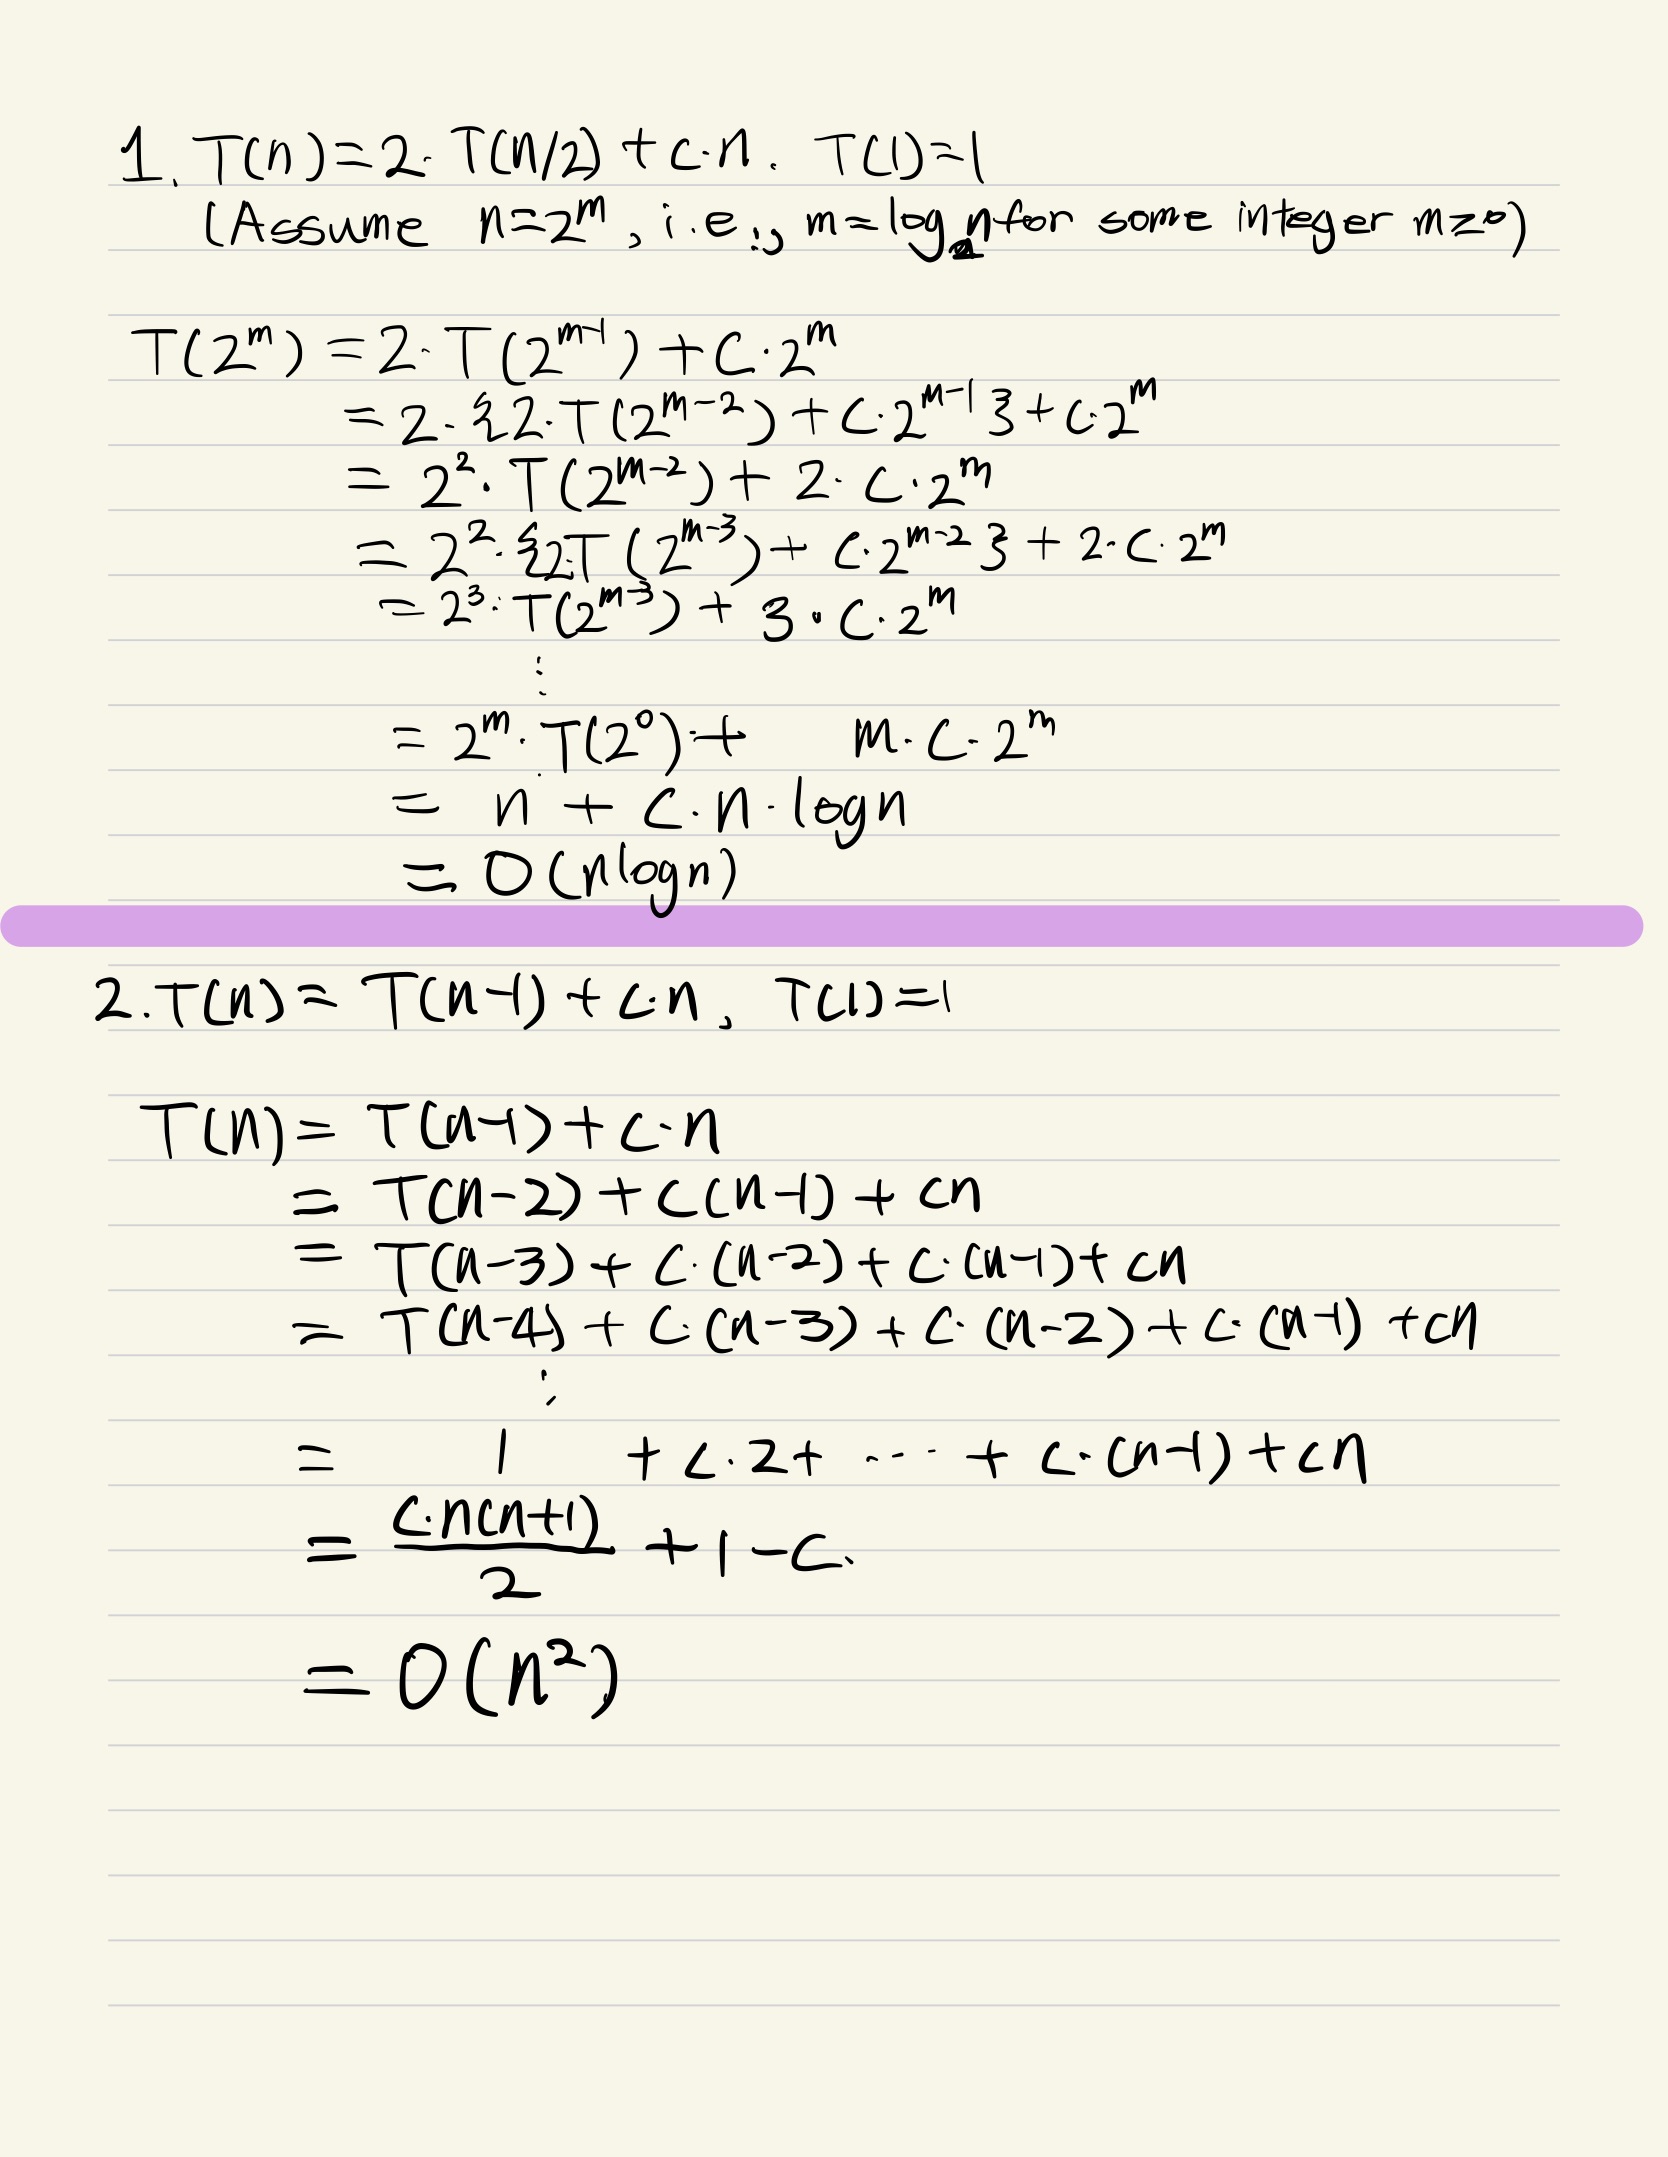 1. T(n)=2·T(n/2)+c·n. T(1)=1
(Assume n=2^m, i.e., m=log₂n for some integer m≥0)
T(2^m) = 2·T(2^(m-1)) + C·2^m
= 2·{2·T(2^(m-2)) + C·2^(m-1)} + C·2^m
= 2²·T(2^(m-2)) + 2·C·2^m
= 2²·{2·T(2^(m-3)) + C·2^(m-2)} + 2·C·2^m
= 2³·T(2^(m-3)) + 3·C·2^m
⋮
= 2^m·T(2⁰) + m·C·2^m
= n + C·n·logn
= O(nlogn)
2. T(n) = T(n-1) + C·n, T(1)=1
T(n) = T(n-1) + C·n
= T(n-2) + C(n-1) + Cn
= T(n-3) + C·(n-2) + C·(n-1) + Cn
= T(n-4) + C·(n-3) + C·(n-2) + C·(n-1) + Cn
⋮
= 1 + C·2 + ··· + C·(n-1) + Cn
= C·n(n+1)/2 + 1 - C.
= O(n²)